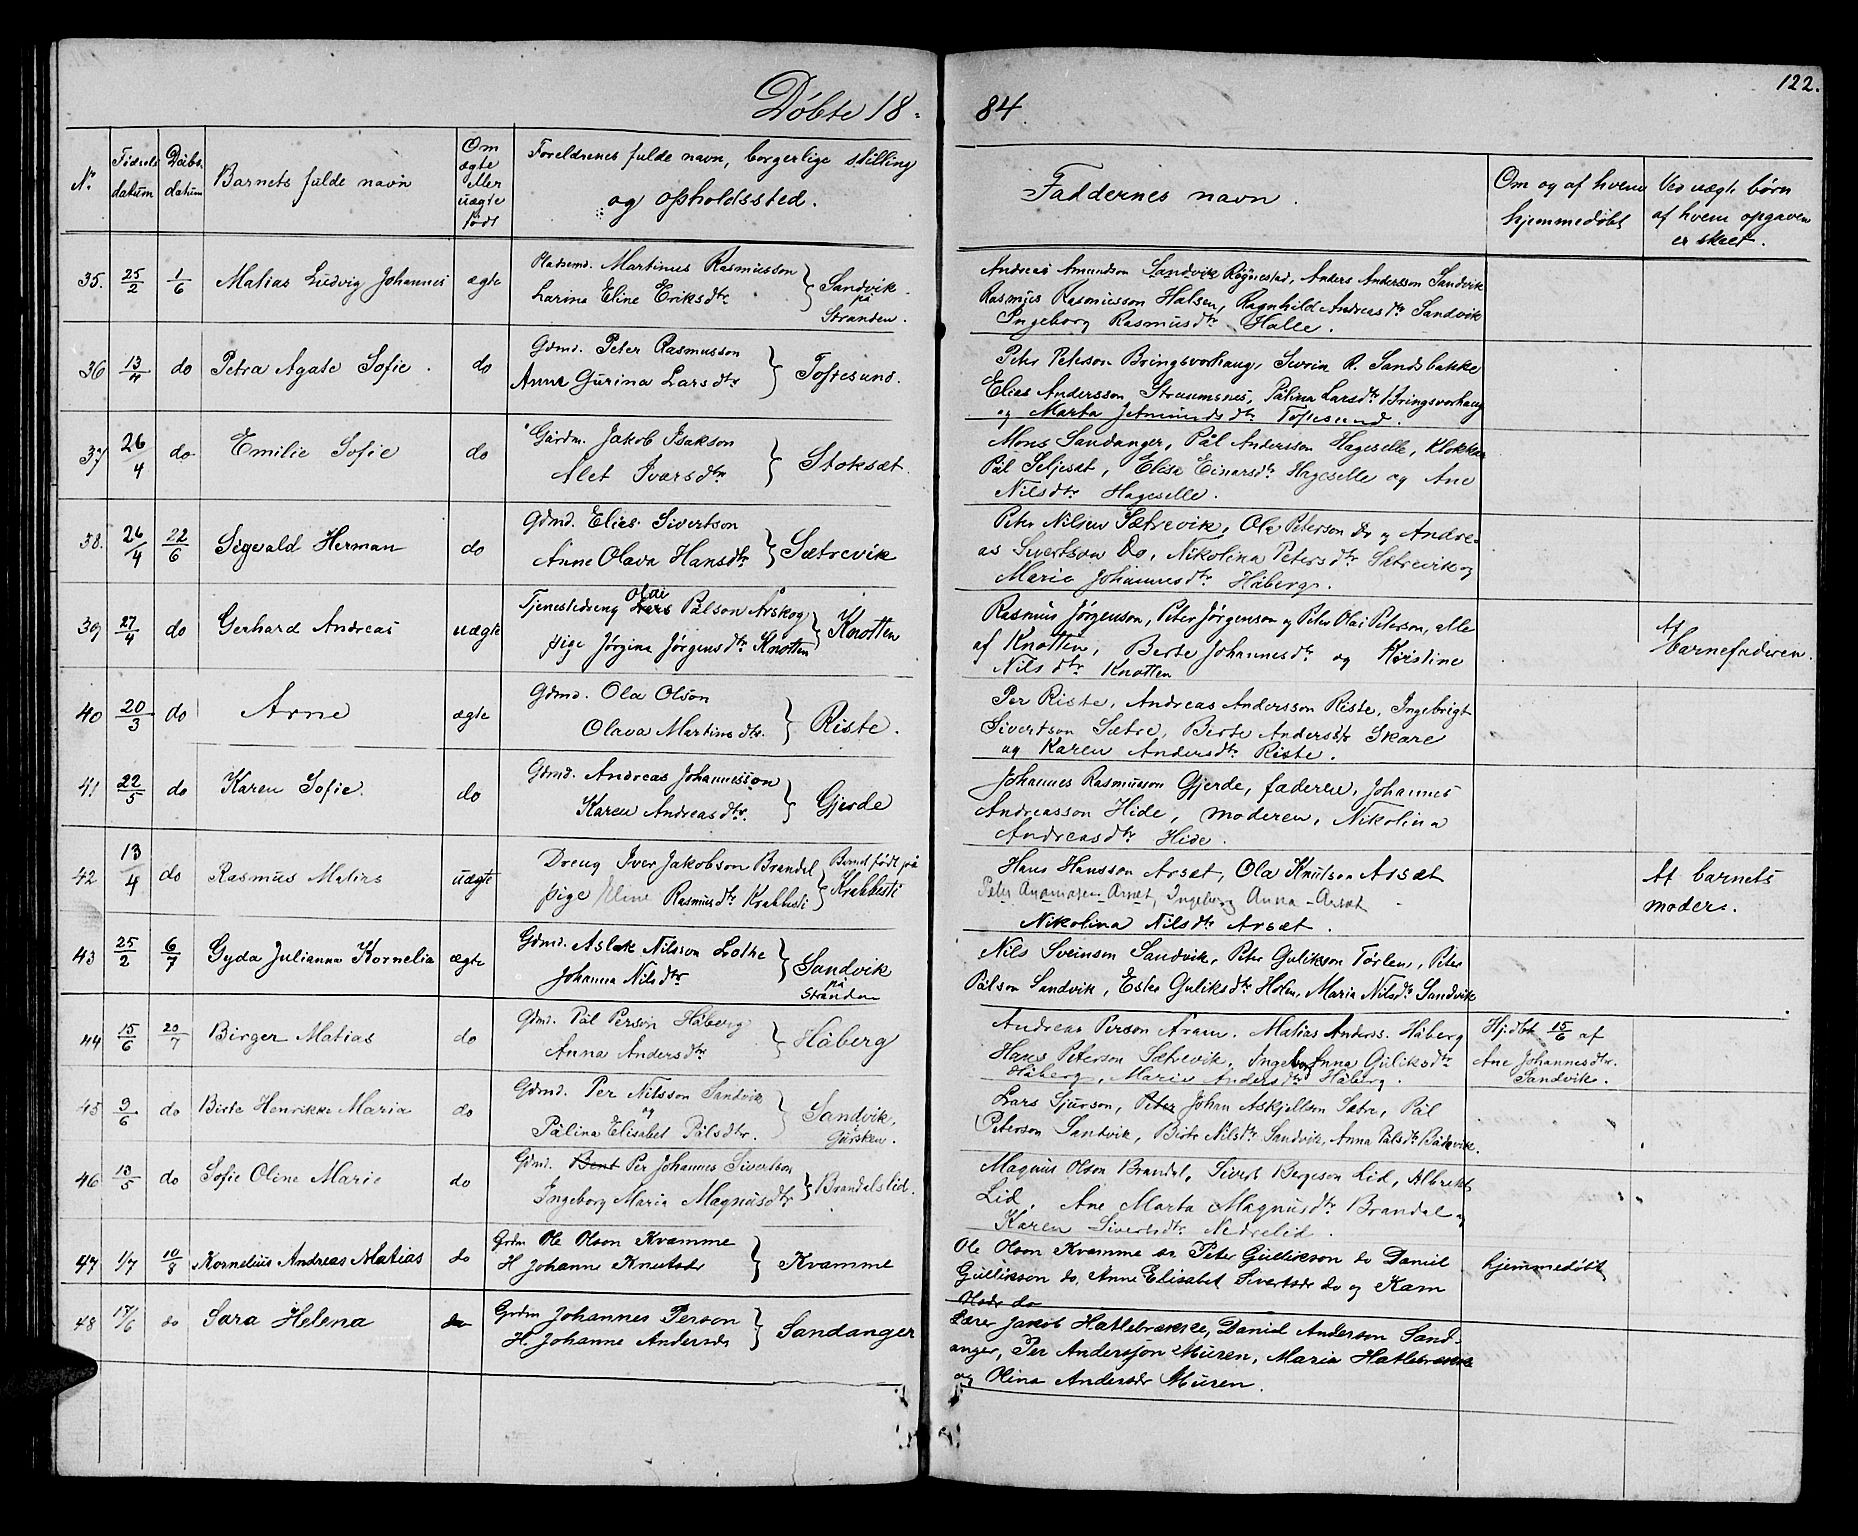 122.
Döbte 18 84.
Nr. Födsels datum Döbs. datum Barnets fulde navn Om ægte eller uægte födt Foreldrenes fulde navn, borgerlige stilling og opholdssted. Faddernes navn. Om og af hvem hjemmedöbt Ved uægte börn af hvem opgaven er skeet.
35. 25/2 1/6 Matias Ludvig Johannes ægte Pladsmd. Martinus Rasmusson
Larina Eline Eriksdtr. } Sandvik på Stranden.
Andreas Amundson Sandvik Rögnestad, Anders Andersson Sandvik
Rasmus Rasmusson Halsen, Ragnhild Andreasdtr Sandvik
Ingeborg Rasmusdtr Halle.
36 13/4 do Petra Agate Sofie. do Gdmd. Peter Rasmusson
Anne Gurina Larsdtr } Toftesund.
Peter Peterson Bringsvorhaug, Severin R. Sandsbakke
Elias Andersson Straumsnes, Pålina Larsdtr Bringsvorhaug
og Marta Jetmundsdtr Toftesund.
37 26/4 do Emilie Sofie do Gårdm. Jakob Isakson
Alet Ivarsdtr } Stoksæt.
Mons Sandanger, Pål Andersson Hageselle, Klokker
Pål Seljesæt, Elise Einarsdtr Hageselle og Ane
Nilsdtr Hageselle.
38. 26/4 22/6 Sigvald Herman do Gdmd. Elias Sivertson
Anne Olava Hansdtr } Sætrevik
Peter Nilsen Sætrevik, Ola Peterson do og Andre-
as Sivertson Do, Nikolina Petersdtr Sætrevik og
Marie Johannesdtr Håberg.
39 27/4 do Gerhard Andreas uægte Tjenestedreng Lars Olai Pålson Årskog
pige Jörgina Jörgensdtr Knotten } Knotten
Rasmus Jörgenson, Peter Jörgenson og Peter Olai Peterson, alle
af Knotten, Berte Johannesdtr og Kirstine
Nilsdtr Knotten
Af
Barnefaderen.
40 20/3 do Arne ægte Gdmd. Ola Olson
Olava Martinsdtr. } Riste.
Per Riste, Andreas Andersson Riste, Ingebrigt
Sivertson Sætre, Berte Andersdtr Skare
og Karen Andersdtr Riste.
41 22/5 do Karen Sofie. do Gdmd. Andreas Johannesson
Karen Andreasdtr. } Gjerde
Johannes Rasmusson Gjerde, faderen, Johannes
Andreasson Hide, moderen, Nikolina
Andreasdtr Hide.
42 13/4 do Rasmus Matias uægte Dreng Iver Jakobson Brandal
pige Eline Rasmusdtr Krabbesti } Barnet födt på
Krabbesti
Hans Hansson Arsæt, Ola Knutson Arsæt
Peter Arsæt, Ingeborg Anna Arsæt
Nikolina Nilsdtr Arsæt.
Af barnets
moder.
43 25/2 6/7 Gyda Julianna Kornelia ægte Gdmd. Aslak Nilsson Lothe
Johanna Nilsdtr } Sandvik
på
Stranden
Nils Sveinson Sandvik, Peter Gulikson Törlen, Peter
Pålson Sandvik, Ester Guliksdtr Holen, Maria Nilsdtr Sandvik
44 15/6 20/7 Birger Matias do Gdmd. Pål Person Håberg
Anna Andersdtr } Håberg
Andreas Person Aram. Matias Anderss. Håberg
Hans Peterson Sætrevik, Ingeborg Anna Guliksdtr
Håberg, Marie Andersdtr Håberg.
Hj.döbt 15/6 af
Ane Johannesdtr.
Sandvik.
45 9/6 do Birte Henrikke Maria do Gdmd. Per Nilsson Sandvik
og
Pålina Elisabet Pålsdtr. } Sandvik,
Gursken.
Lars Sjurson, Peter Johan Askjellson Sætre, Pål
Peterson Sandvik, Birte Nilsdtr Sandvik, Anna Pålsdtr
46 13/5 do Sofie Oline Marie do Gdmd. Bent Per Johannes Sivertson
Ingeborg Maria Magnusdtr } Brandalslid.
Magnus Olson Brandal, Sivert Bergeson Lid, Albrekt
Lid, Ane Marta Magnusdtr Brandal og
Karen Sivertsdtr Nedrelid.
47 1/7 10/8 Kornelius Andreas Matias do Grdm Ole Olson Kvamme
H Johanne Knutsdr } Kvamme
Ole Olson Kvamme sr Peter Gullikson do Daniel
Gullikson do, Anne Elisabet Sivertsdr do og Karn
Olsdr do
hjemmedöbt
48 17/6 do Sara Helena do Grdm Johannes Person
H. Johanne Andersdr } Sandanger
Lærer Jakob Hatlebrække, Daniel Anderson Sand-
anger, Per Andersson Muren, Maria Hatlebrække
og Olina Andersdr Muren.